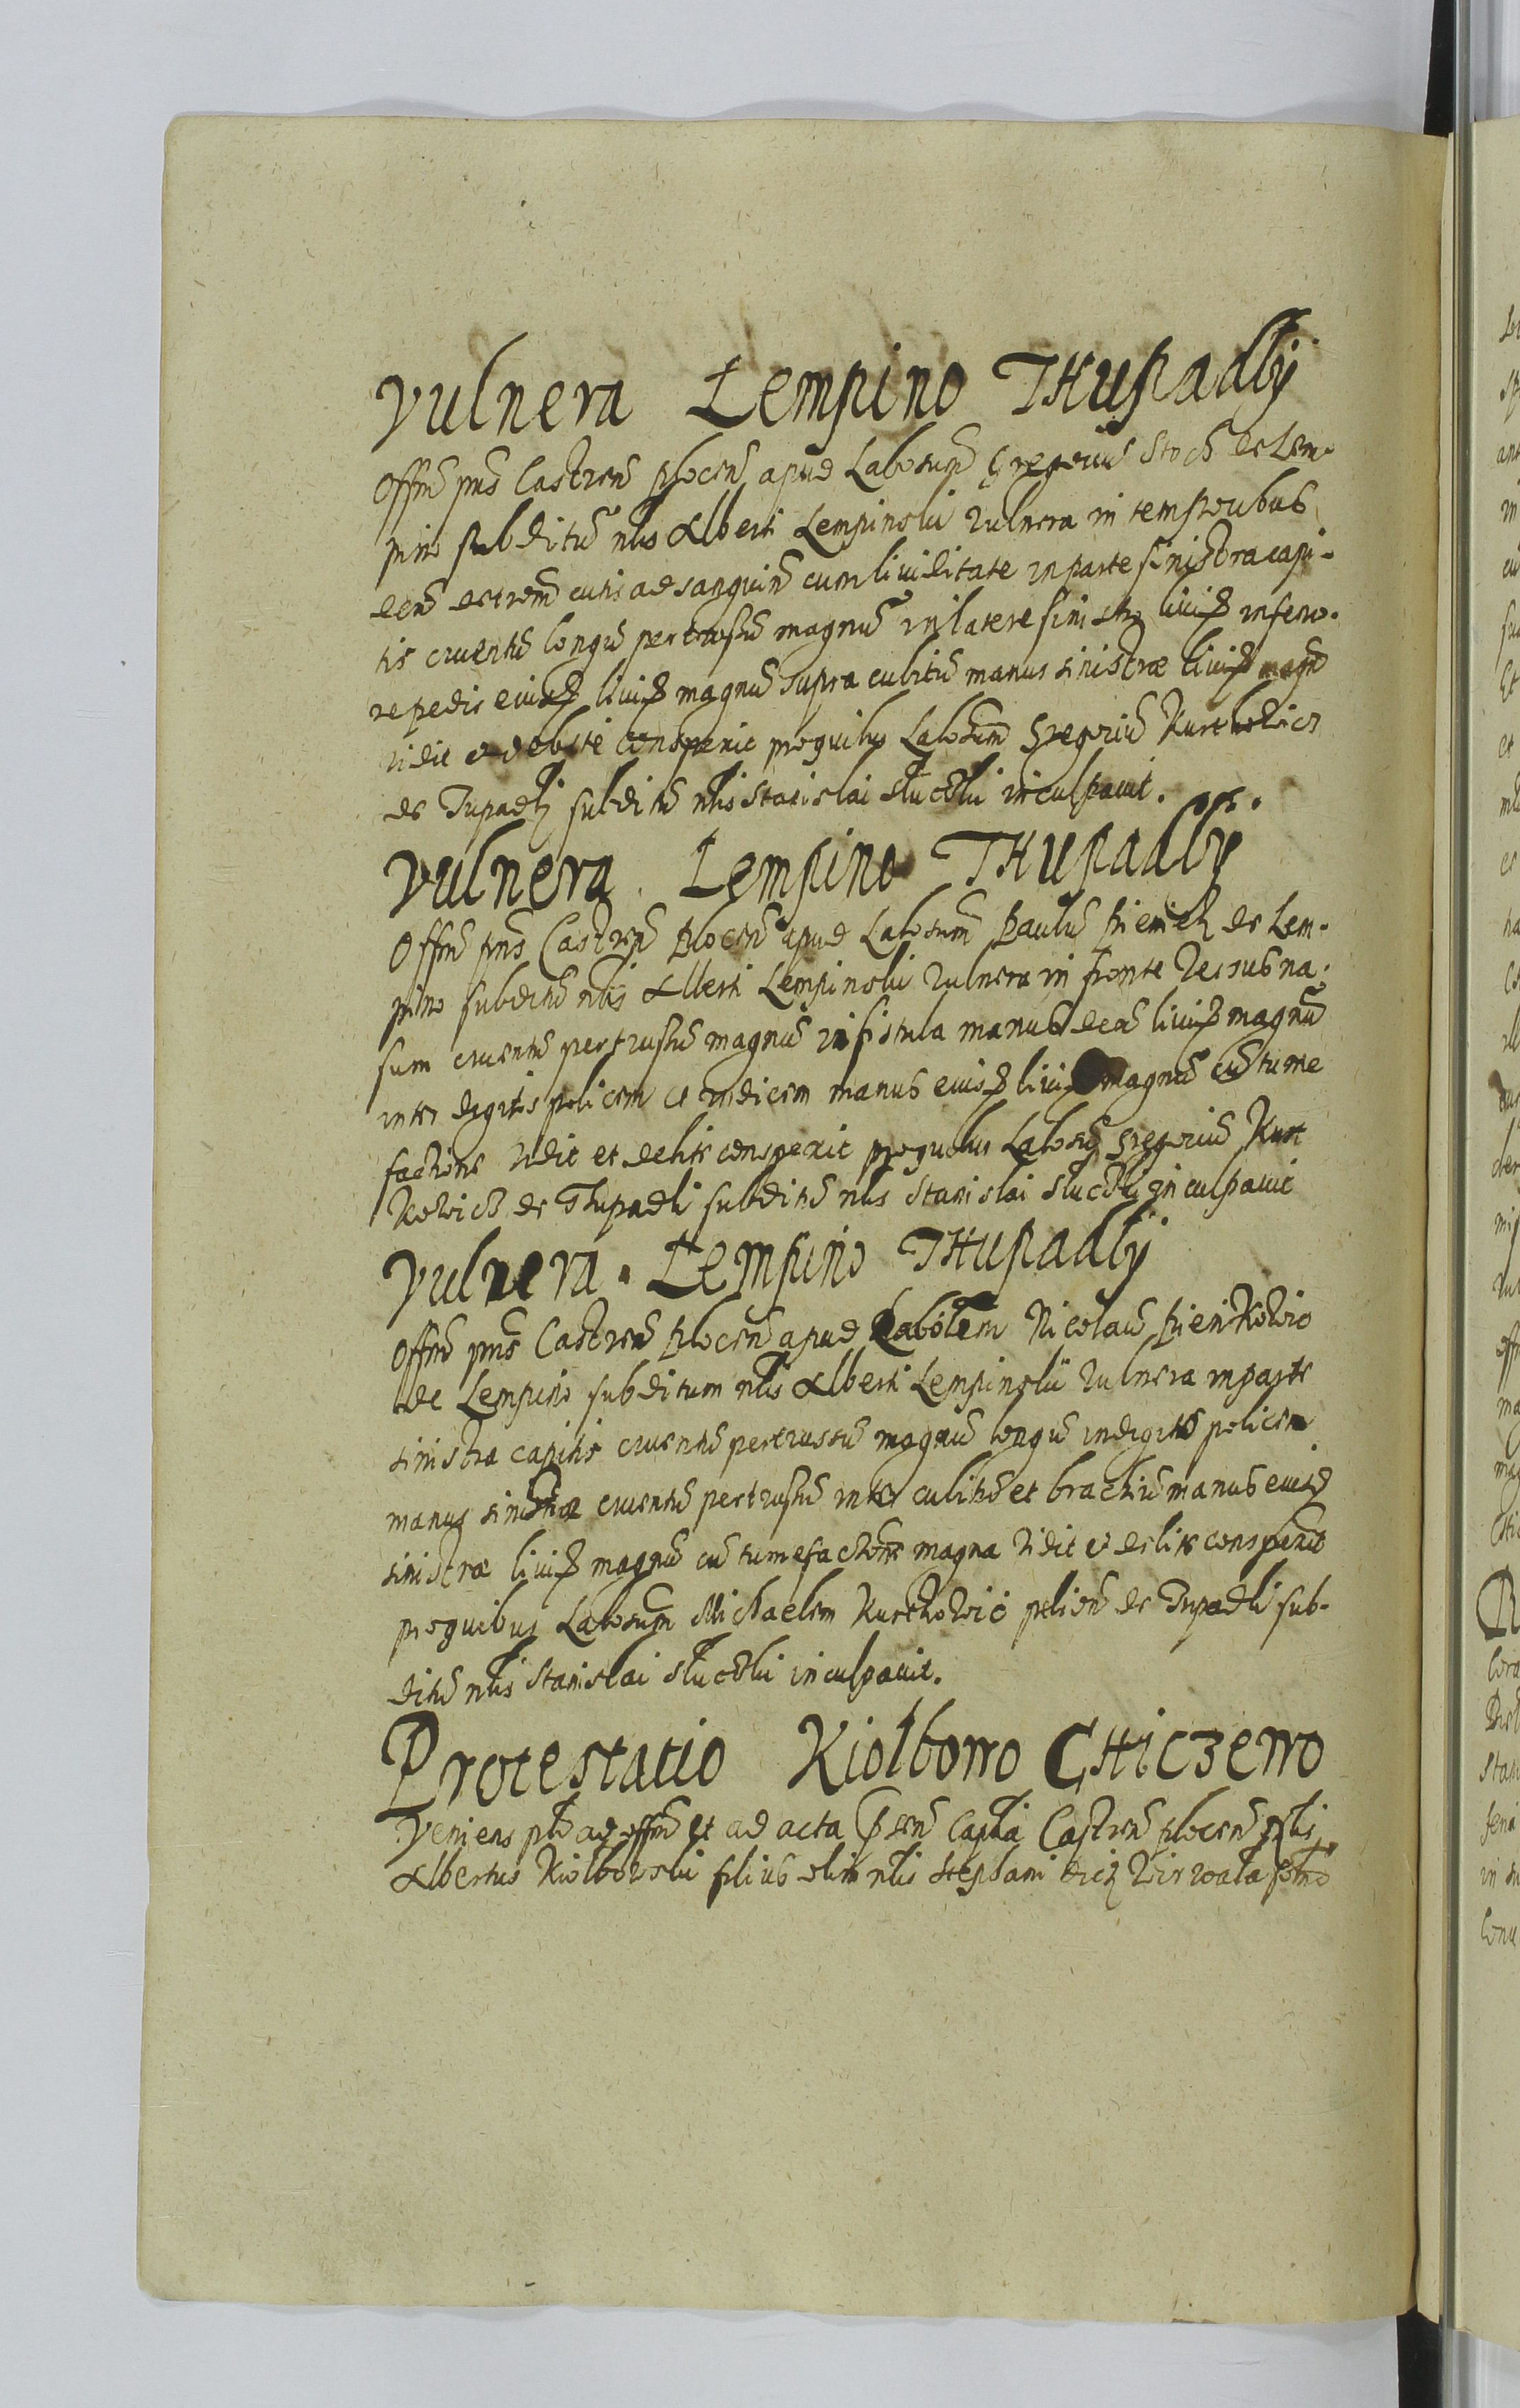 Vulnera Lempino THupadlÿ
Offm pns Castren Plocen apud Labosum Gregoriu Stoch de Lem-
pino subditu nlis Alberti Lempinski vulnera in temporibus
dextrem cutis ad sanguine cum liuiditate in parte sinistra capi-
tis cruentu longu pertussu magnu in latere sinistro liuid inferio-
re pedis eiusd liuid magnu supra cubitu manus sinistræ liuid magn
vidit et debite conspexit pro quibus Labosum Gregoriu Kurtkowicz
de Tupadlj subditu nlis Stanislai inculpauit.
Vulnera Lempino THupadlÿ
Offm pns Castren Plocen apud Labosum Paulu Pieniek de Lem-
pino subditu nlis Alberti Lempinski vulnera in fronte versus na-
sum cruentu pertussu magnu in fistula manus liuid magnu
inter digitos policem et indicem manus eiusd liuid magnu cu tume
factione vidit et debite conspexit pro quibus Labosu Gregoriu Kurt
kowicz de Thupadli subditu nlis Stanislai inculpauit
Vulnera . Lempino THupadlÿ
Offm pns Castren Plocen apud Labosem Nicolau Pienkowic
de Lempino subditum nlis Alberti Lempinskii vulnera in parte
sinistra capitis cruentu pertussu magnu longu in digito policem
manus sinistræ cruentu pertussu inter cubitu et brachiu manus eiusd
sinistræ liuid magnu cu tumefactione magna vidit et debite conspexit
pro quibus Labosum Michaelem Kurtkowic de Tupadli sub-
ditu nlis Stanislai inculpauit.
Protestatio Kiolbowo CHiczewo
Veniens ad offm et ad acta Captia Castren Plocen nlis
Albertus Kiolbowski filius olim nlis Stephani